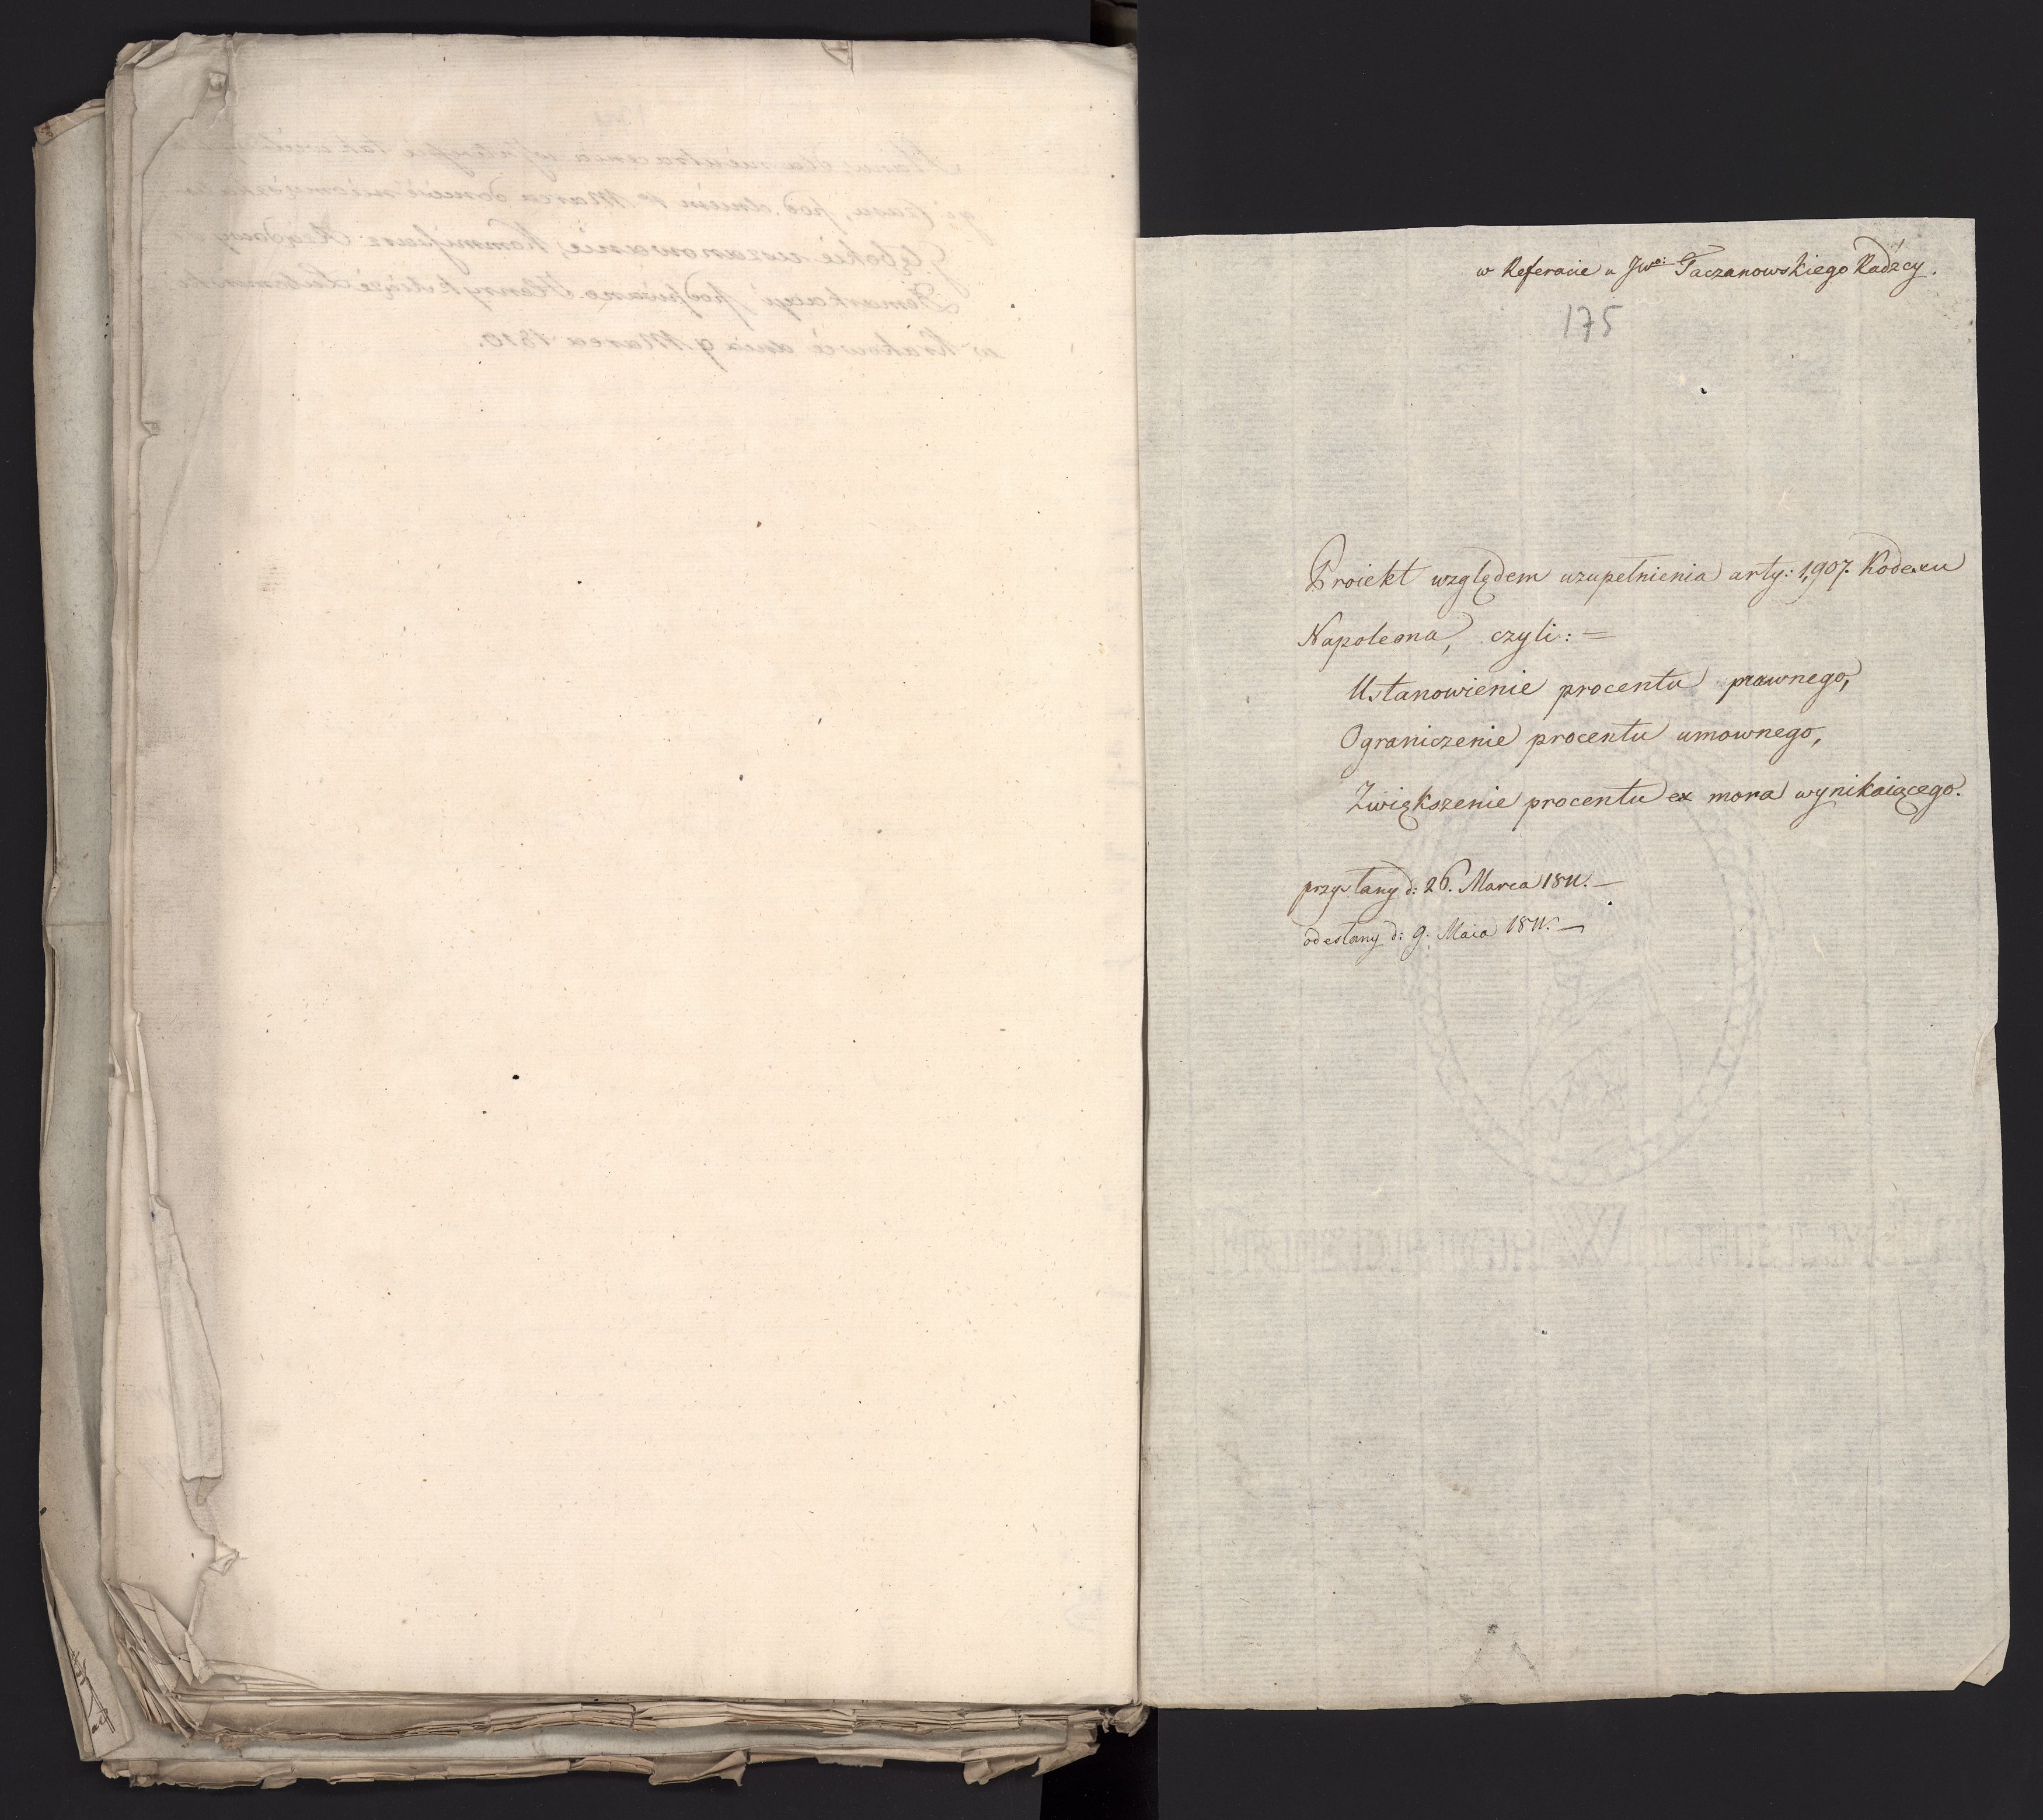 w Referacie u JWo: Taczanowskiego Radźcy.
175
Proiekt względem uzupełnienia arty: 1,907. Kodexu
Napoleona, czyli: =
Ustanowienie procentu prawnego,
Ograniczenie procentu umownego,
Zwiększenie procentu ex mora wynikaiącego.
przysłany d: 26. Marca 1811. —
odesłany d: 9. Maia 1811. —